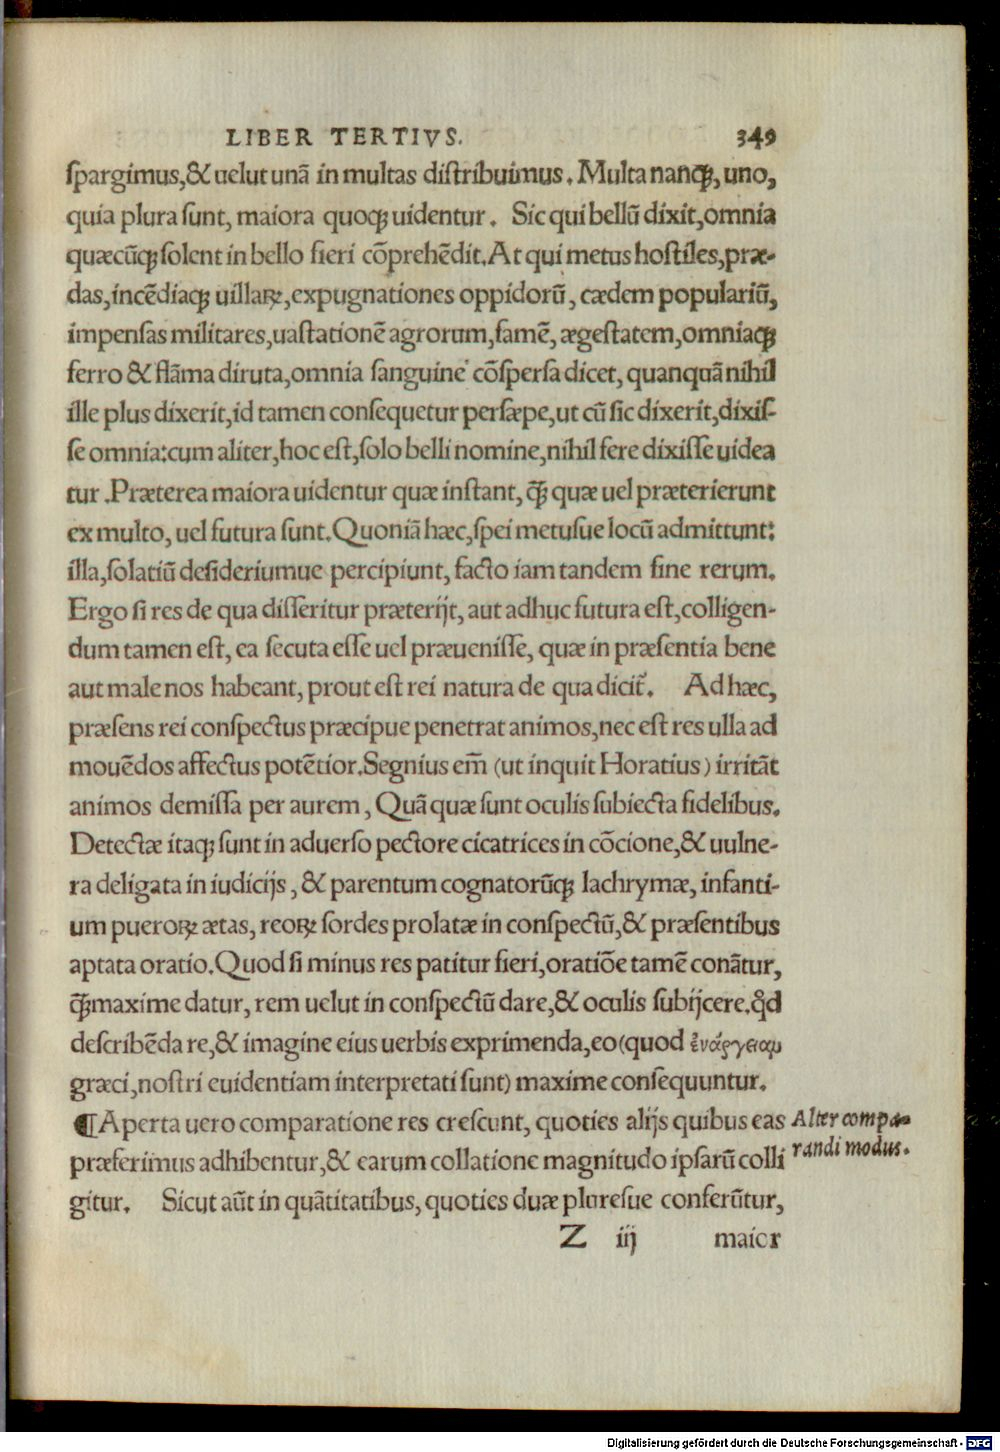 LIBER TERTIVS. 349
ſpargimus,& uelut unã in multas diſtribuimus. Multa nanqꝫ, uno,
quia plura ſunt, maiora quoqꝫ uidentur. Sic qui bellũ dixit,omnia
quæcũqꝫ ſolent in bello fieri cõprehẽdit.At qui metus hoſtiles,præ-
das,incẽdiaqꝫ uillaꝝ,expugnationes oppidorũ, cædem populariũ,
impenſas militares,uaſtationẽ agrorum,famẽ, ægeſtatem,omniaqꝫ
ferro & flãma diruta,omnia ſanguine cõſperſa dicet, quanquã nihil
ille plus dixerit,id tamen conſequetur perſæpe,ut cũ ſic dixerit,dixiſ-
ſe omnia:cum aliter,hoc eſt,ſolo belli nomine,nihil fere dixiſſe uidea
tur.Præterea maiora uidentur quæ inſtant, qꝫ̃ quæ uel præterierunt
ex multo, uel futura ſunt.Quoniã hæc,ſpei metuſue locũ admittunt:
illa,ſolatiũ deſideriumue percipiunt, facto iam tandem fine rerum.
Ergo ſi res de qua diſſeritur præterijt, aut adhuc futura eſt,colligen-
dum tamen eſt, ea ſecuta eſſe uel præueniſſe, quæ in præſentia bene
aut male nos habeant, prout eſt rei natura de qua dicit᷑. Ad hæc,
præſens rei conſpectus præcipue penetrat animos,nec eſt res ulla ad
mouẽdos affectus potẽtior.Segnius em̃ (ut inquit Horatius) irritãt
animos demiſſa per aurem, Quã quæ ſunt oculis ſubiecta fidelibus.
Detectæ itaqꝫ ſunt in aduerſo pectore cicatrices in cõcione,& uulne-
ra deligata in iudicijs, & parentum cognatorũqꝫ lachrymæ, infanti-
um pueroꝝ ætas, reoꝝ ſordes prolatæ in conſpectũ,& præſentibus
aptata oratio.Quod ſi minus res patitur fieri,oratiõe tamẽ conãtur,
qꝫ̃ maxime datur, rem uelut in conſpectũ dare,& oculis ſubijcere.qd̕
deſcribẽda re,& imagine eius uerbis exprimenda,eo(quod ἐνάργειαν
græci,noſtri euidentiam interpretati ſunt) maxime conſequuntur.
¶Aperta uero comparatione res creſcunt, quoties alijs quibus eas
præferimus adhibentur,& earum collatione magnitudo ipſarũ colli
gitur. Sicut aũt in quãtitatibus, quoties duæ plureſue conferũtur,
Alter compa-
randi modus.
Z iij maior
Digitalisierung gefördert durch die Deutsche Forschungsgemeinschaft - DFG